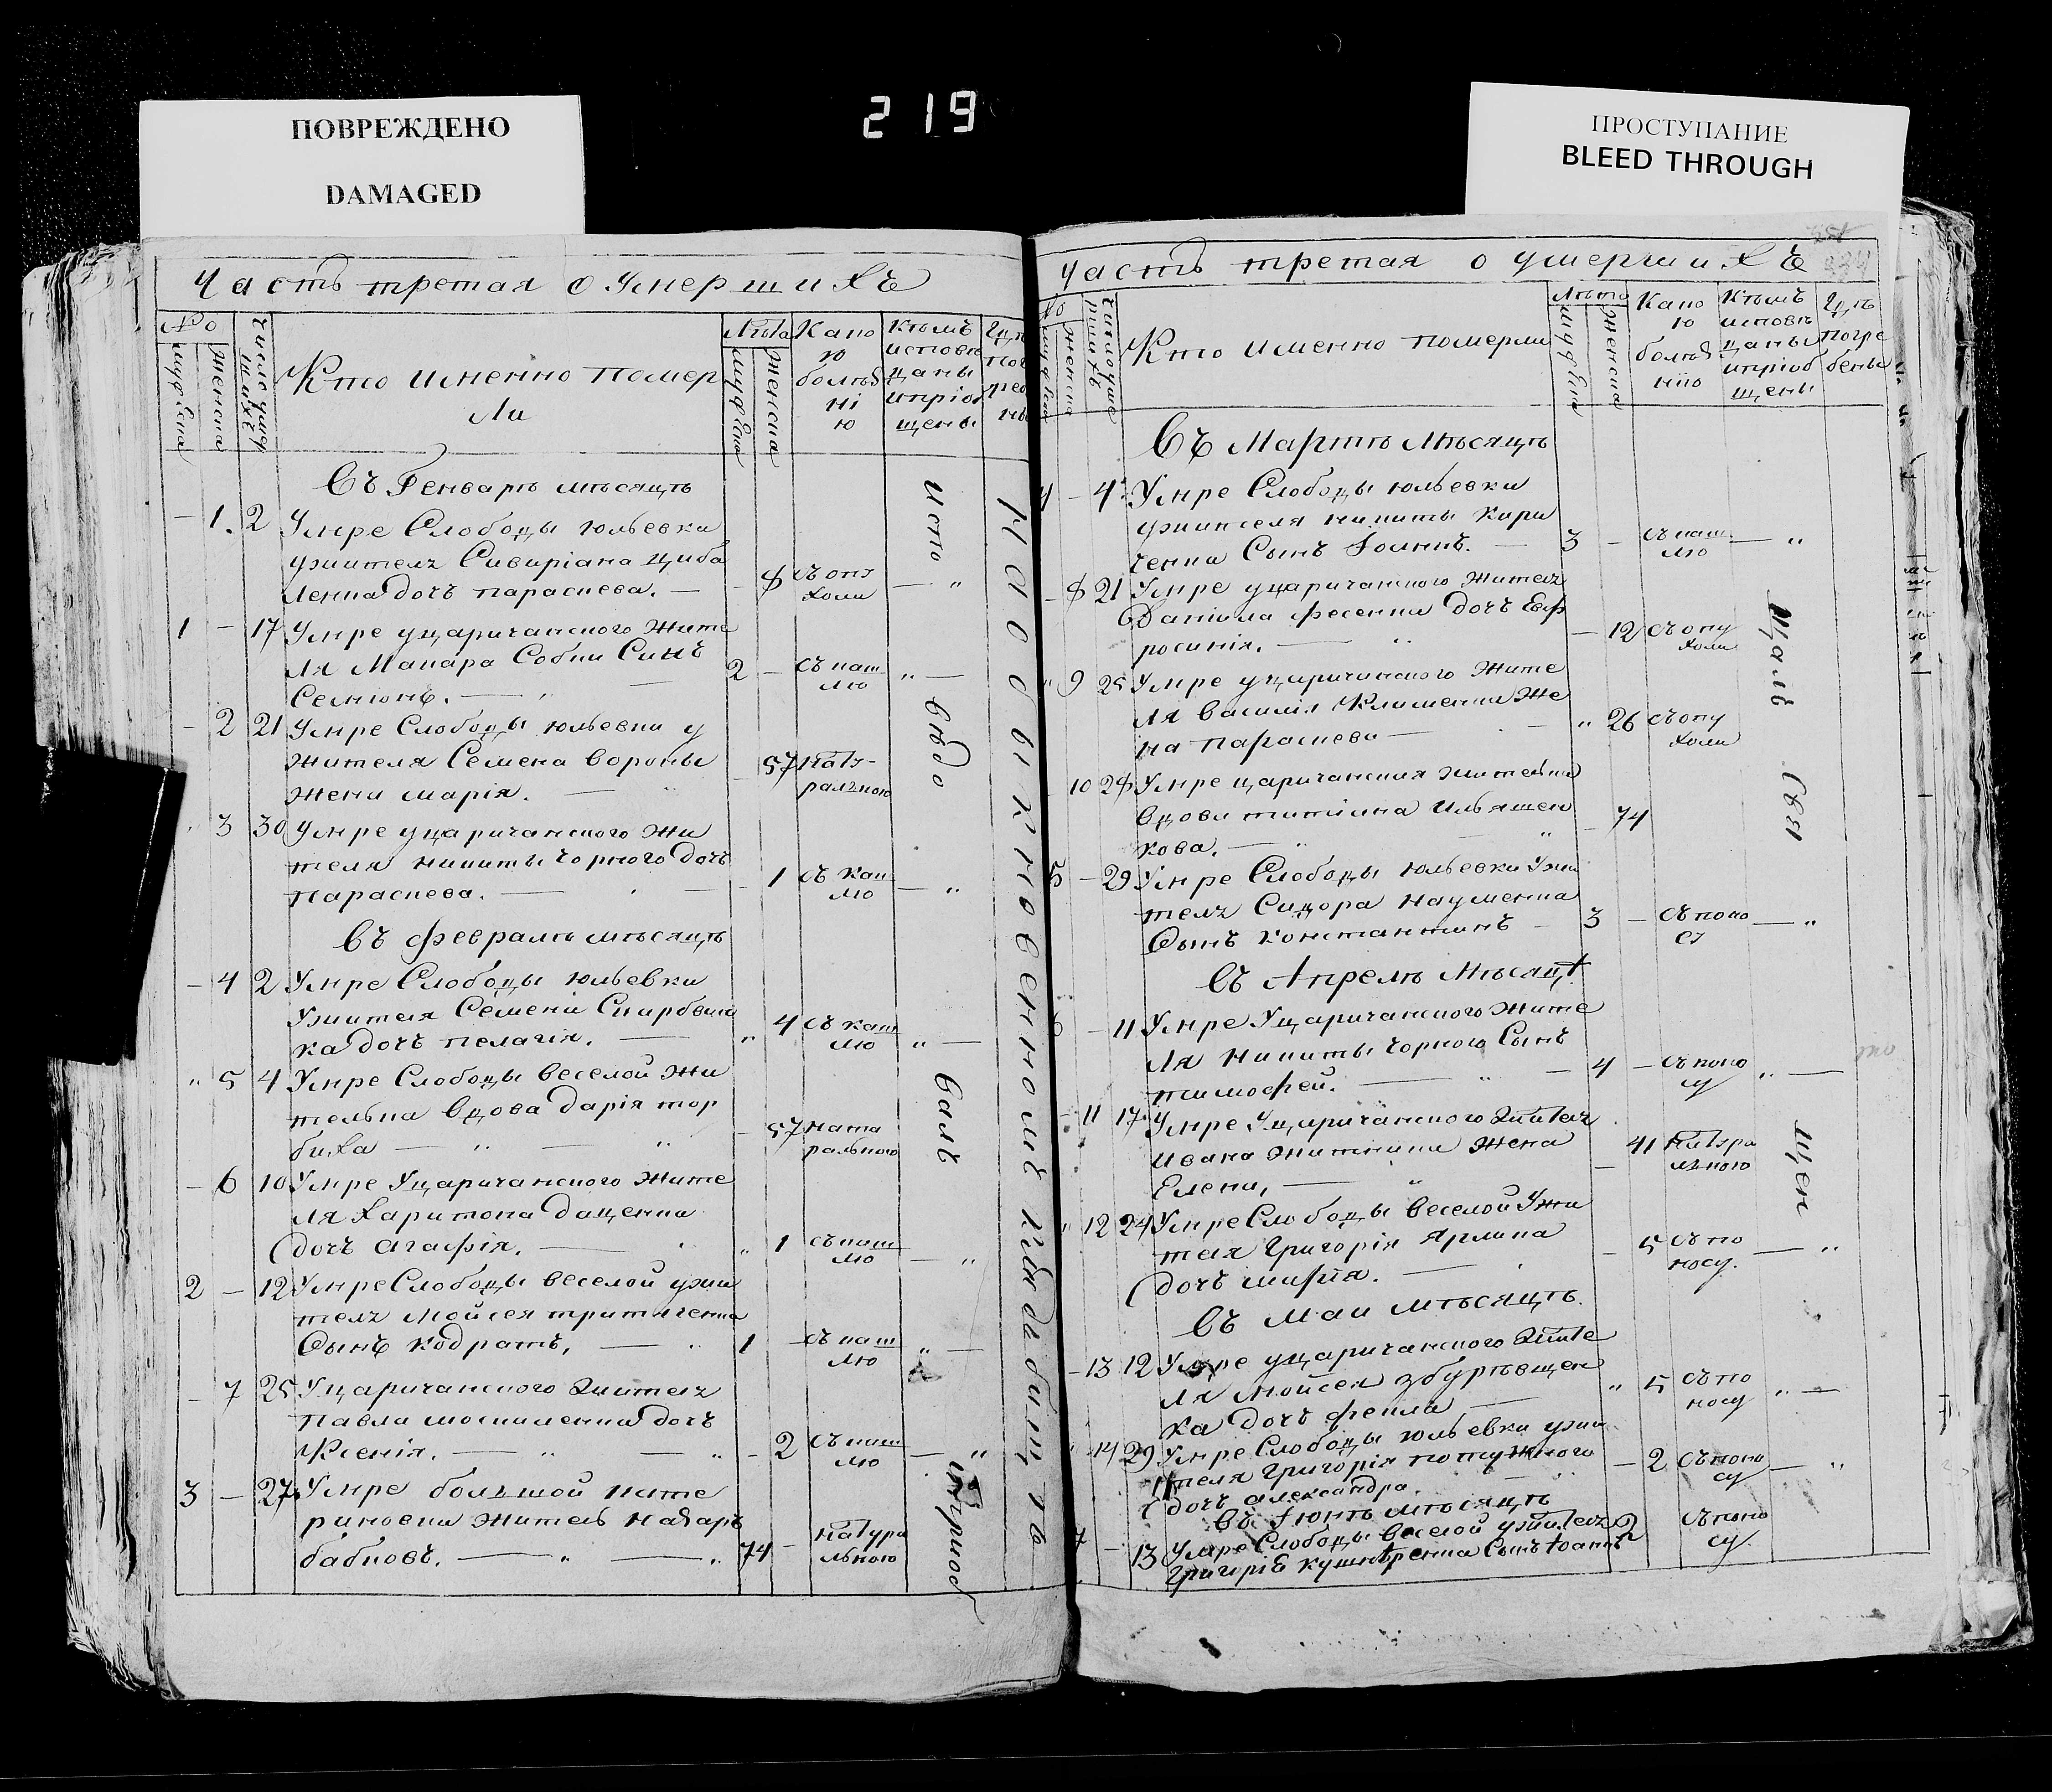 ПОВРЕЖДЕНО
DAMAGED
219
ПРОСТУПАНИЕ
BLEED THROUGH
Часть третая о Умершихъ
№
мужеска
женска
число умершихъ
Кто именно померли
Лѣта
мужеска
женска
Какою болѣзнію
Кѣмъ исповѣданы и пріобщены
Гдѣ
Въ Генварѣ мѣсяцѣ
- 1. 2 Умре Слободы юльевки
ужителя Сивиріана Циба
ленка дочъ параскева. - 8 съ опу
холи
1 - 17 Умре уцаричанского жите
ля Макара Собки Синъ
Семіонъ. 2 - съ каш
лю
- 2 21 Умре Слободы юльевки у
жителя Семена вороны
жена марія. 57 нату-
ралною
3 30 Умре уцаричанского жи
теля никиты чорного дочъ
Параскева. - 1 съ каш
лю
въ февралѣ мѣсяцѣ
- 4 2 Умре Слободы юльевки
ужителя Семена
ка дочъ пелагія. 4 съ каш
лю
5 4 Умре Слободы веселой жи
телька вдова дарія тор
биха 57 ната
рального
- 6 10 Умре Уцаричанского жите
ля Харитона даценка
дочъ агафія. 1 съ каш
лю
2 - 12 Умре Слободы веселой ужи
теля мойсея
Сынъ кодратъ, 1 съ каш
лю
- 7 25 Уцаричанского жителя
павла москаленка дочъ
Ксенія. - 2 съ каш
лю
3 - 27 Умре большой кате
риновки житель назаръ
бабковъ. 74 - натура
льного
Исповѣдовалъ и пріоб
На обыкновенномъ кладбищѣ
Часть третая о умершихъ
№
мужеска
женска
число умершихъ
Кто именно померли
Лѣта
мужеска
женска
Како
ю
болѣз
нію
Кѣмъ
исповѣ
даны
и пріоб
щены
Гдѣ
погре
бены
Въ Мартѣ мѣсяцѣ
4 - 4 Умре Слободы юльевки
ужителя никиты Кири
ченка Сынъ Іоаннъ. 3 - съ каш
лю
- 8 21 Умре уцаричанского жителя
Даніила фесенка дочъ Евф
росинія. - 12 съ опу
холи
9 25 Умре уцаричанского жите
ля василія Клименка же
на параскева 26 съ опу
холи
10 28 Умре царичанская жителька
вдова татіяна Ильяшен
кова. - 74
5 - 29 Умре Слободы юльевки Ужи
теля Сидора науменка
Сынъ константинъ 3 - съ поно
су
въ Апрелѣ мѣсяцѣ
- 11 Умре Уцаричанского жите
ля никиты чорного Сынъ
тимофей. 4 - съ поно
су
- 11 17 Умре Уцаричанского жителя
ивана житника жена
Елена, - 41 натура
лного
12 24 Умре Слободы веселой Ужи
теля Григорія Ярлика
дочъ марія. - 5 съ по
носу.
въ Маи мѣсяцѣ.
- 13 12 Умре уцаричанского жите
ля мойсея збурѣвщен
ка дочъ фекла 5 съ по
носу
14 29 Умре Слободы юльевки ужи
теля григорія потужного
дочъ александра. - 2 съ поно
су
въ Іюнѣ мѣсяцѣ
7 - 13 Умре Слободы веселой ужителя
григоріе кушнѣренка Сынъ Іоаннъ 2 съ поно
су
Цалъ Свя
щен